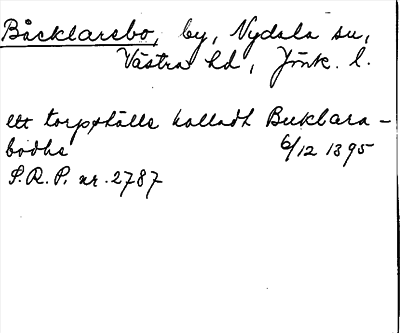 Båcklarebo, by, Nydala sn,
Västra hd, Jönk. l.
ett torpställe kalladh Buklara-
bodha 6/12 1395
S.R.P. nr. 2787